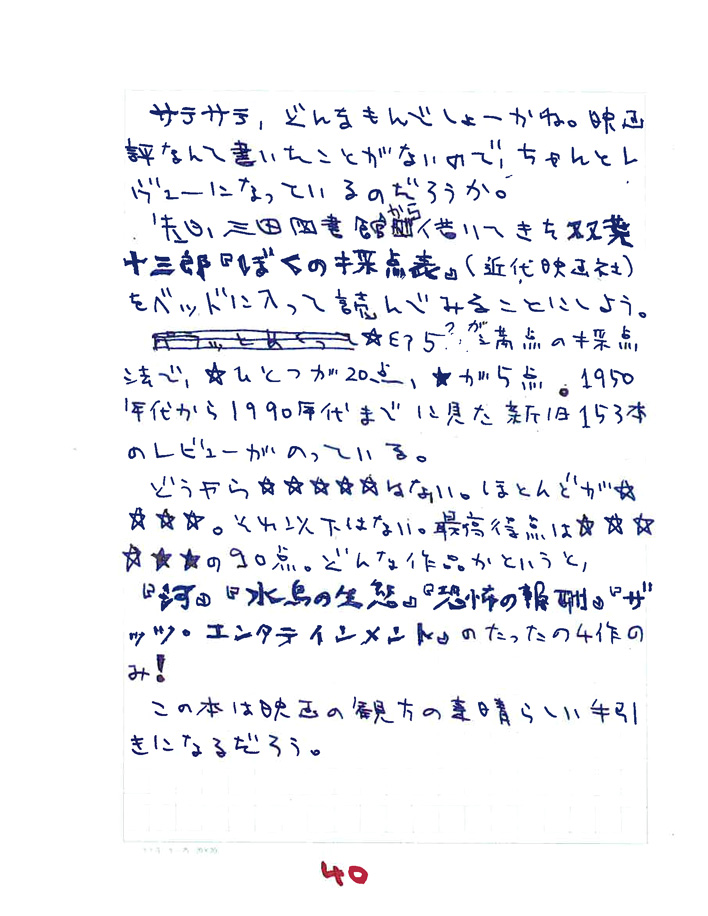 サテサテ、どんなもんでしょーかね。映画
評なんて書いたことがないので、ちゃんとレ
ヴューになっているのだろうか。
先日、三田図書館から借りてきた双葉
十三郎『ぼくの採点表』(近代映画社)
をベッドに入って読んでみることにしよう。
☆が5つ?が満点の採点
法で、☆ひとつが20点、★が5点。1950
年代から1990年代までに見た新旧153本
のレビューがのっている。
どうやら☆☆☆☆☆はない。ほとんどが☆
☆☆☆。それ以下はない。最高得点は☆☆☆
☆★★の90点。どんな作品かというと、
『河』『水鳥の生態』『恐怖の報酬』『ザ
ッツ・エンタテインメント』のたったの4作の
み!
この本は映画の観方の素晴らしい手引
きになるだろう。
40